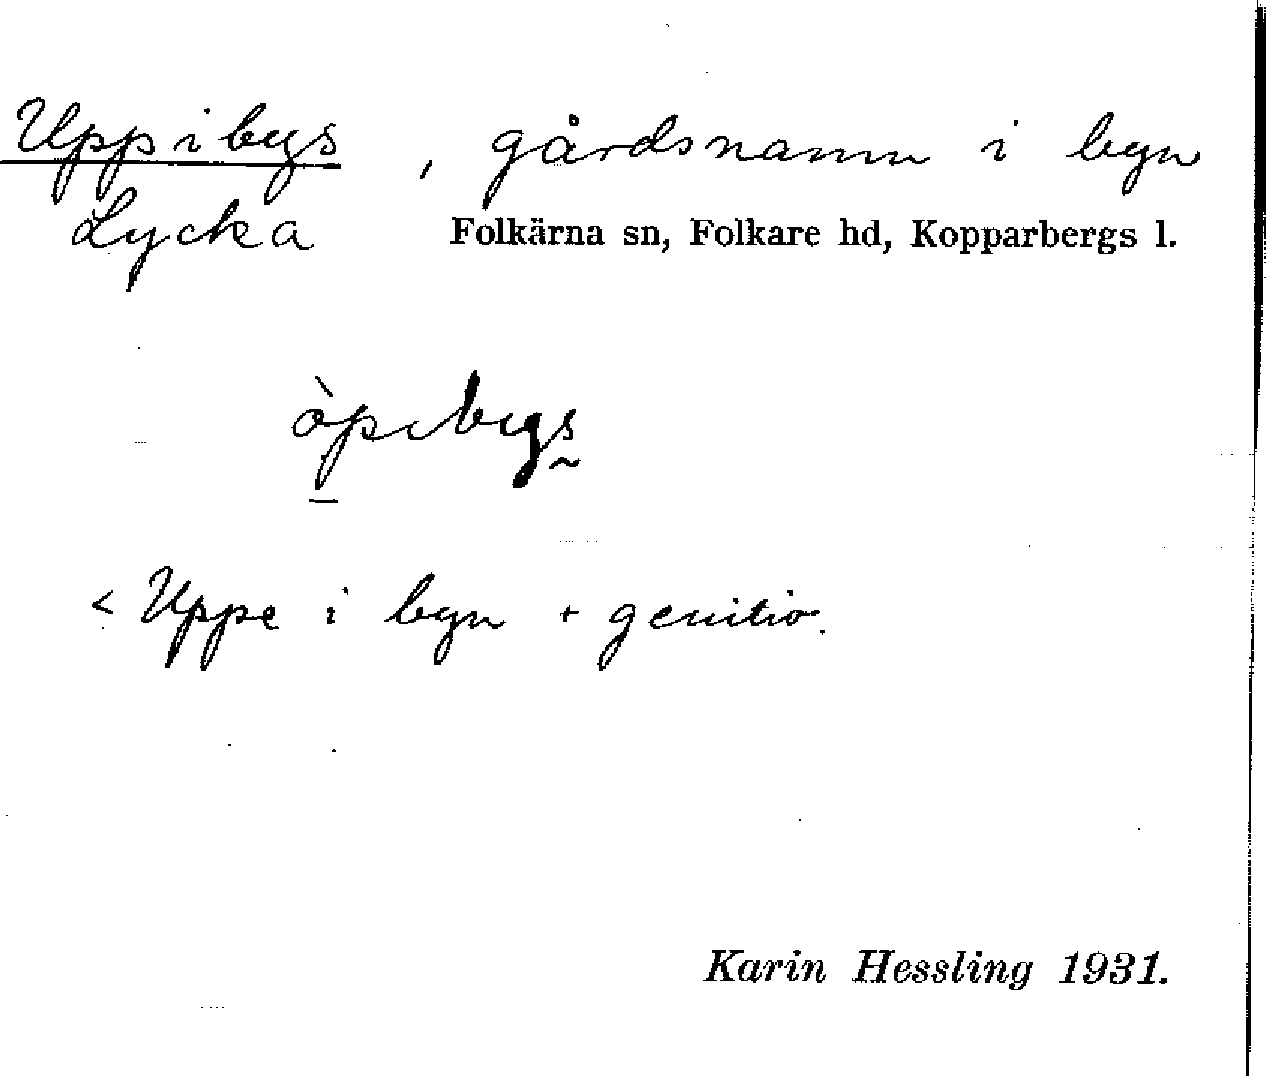 Uppibys, gårdsnamn i byn
Lycka Folkärna sn, Folkare hd, Kopparbergs l.
òpibygs
< Uppe i byn + genitiv.
Karin Hessling 1931.